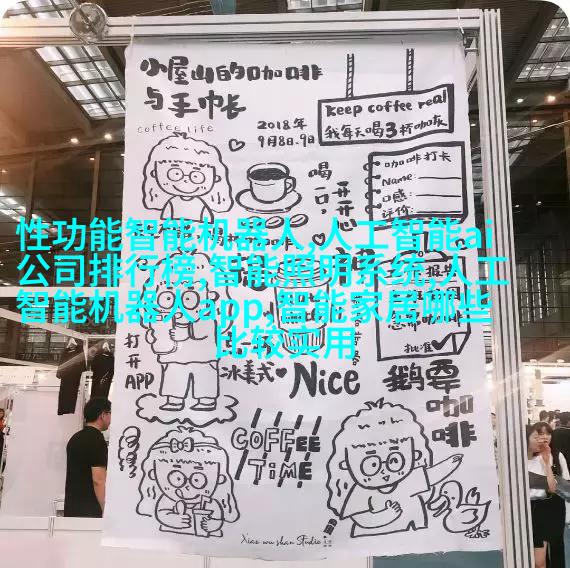 小屋山的咖啡
与手巾长
coffee life
2018年
9月8日.9日
keep coffee real
我每天喝3杯咖灰
咖啡打卡
Name:
口感:
评价:
喝一口,
开开心
性功能智能机器人,人工智能ai
公司排行榜,智能照明系统,人工
智能机器人app,智能家居哪些
比较实用
打开APP
冰美式
Nice
批准
鹅要
咖啡
COFFEE
TiME
Xiao wu shan Studio